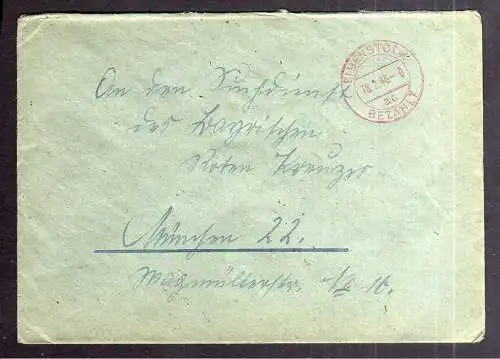 EIBENSTOCK
18.2.46-8
BEZAHLT
An den Suchdienst
des Bayrischen
Roten Kreuzes
München 22.
Wagmüllerstr. 16.